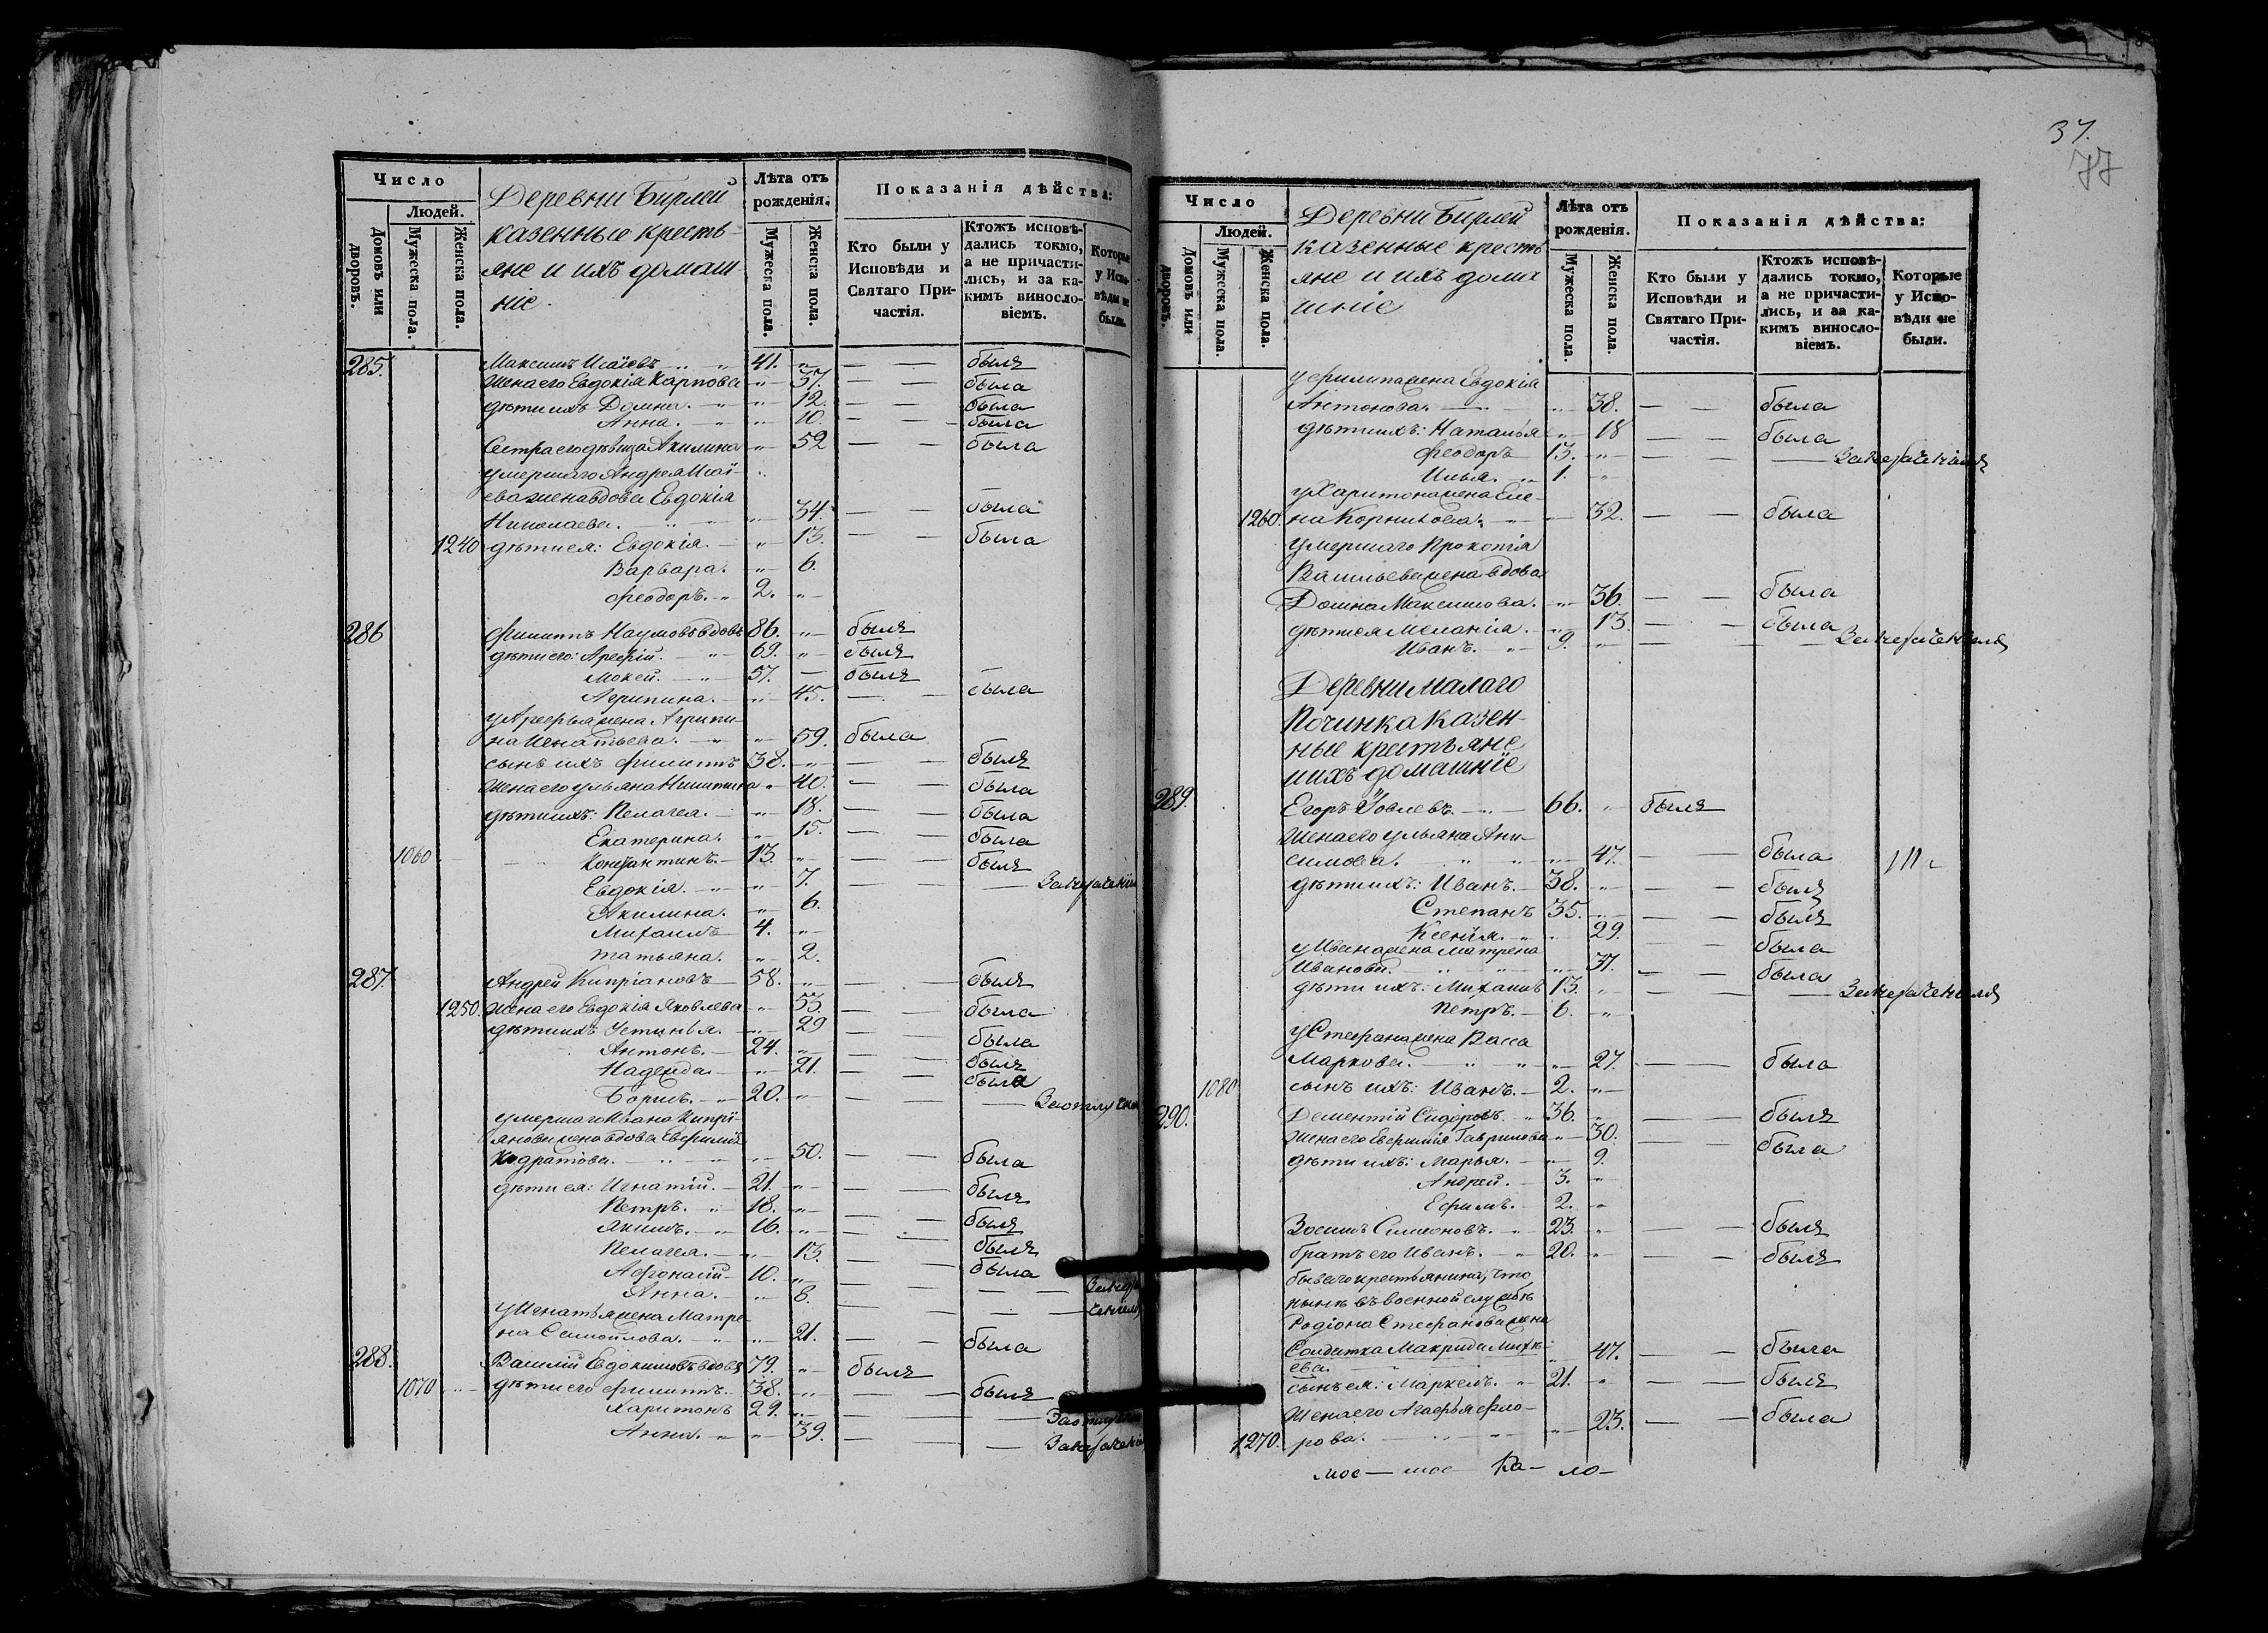 Число
Людей.
Домовъ или дворовъ.
Мужеска пола.
Женска пола.
Деревни Бирлей
казенные кресть-
яне и ихъ домаш-
ніе.
Лѣта отъ рожденія.
Мужеска пола.
Женска пола.
Показанія дѣйства:
Кто были у Исповѣди и Святаго При-частія.
Ктожъ исповѣ-дались токмо, а не причасти-лись, и за ка-кимъ виносло-віемъ.
Которые у Испо-вѣди не были.
285. Максимъ Исаіевъ 41. — — былъ
Жена его Евдокія Карпова 37. — — была
дѣти ихъ Домна. 12. — — была
Анна. 10. — — была
Сестра его дѣвица Акилина 52 — — была
умершаго Андрея Исаі-
ева жена вдова Евдокія
Николаева. 34. — — была
1240 дѣти ея: Евдокія. 13. — — была
Варвара. 6.
Ѳеодоръ. 2.
286 Филиппъ Наумовъ вдовъ 86. былъ
дѣти его: Арефій. 69. былъ
Мокей. 57. былъ
Агрипина. 45. — — была
у Арефья жена Агрипи-
на Игнатьева. 59. была
сынъ ихъ Филиппъ 38. — — былъ
Жена его Ульяна Никитина 40. — — была
дѣти ихъ: Пелагея. 18. — — была
Екатерина. 15. — — была
1060 Константинъ. 13. — — былъ
Евдокія. 7. — — —
Акилина. 6.
Михаилъ 4.
Татьяна. 2.
287. Андрей Кипріановъ 58. — — былъ
1250. Жена его Евдокія Яковлева 53. — — была
дѣти ихъ Устинья. 29 — — была
Антонъ. 24. — — былъ
Надежда 21. — — была
Борисъ. 20. — — —
умершаго Ивана Кипрі-
янова жена вдова Евфимія
Кодратова. 50. — — была
дѣти ея: Игнатій. 21. — — былъ
Петръ. 18. — — былъ
Якимъ. 16. — — былъ
Пелагея. 13. — — была
Афонасій 10. — — —
Анна. 8. — — —
у Игнатья жена Матре-
на Самойлова. 21. — — была
288. Василій Евдокимовъ вдовъ 79. былъ
1070 дѣти его Филиппъ. 38. — — былъ
Харитонъ 29. — — —
Анна. 39. — — —
37.
77
Число
Людей.
Домовъ или дворовъ.
Мужеска пола.
Женска пола.
Деревни Бирлей
казенные кресть
яне и ихъ дома
шніе
Лѣта отъ рожденія.
Мужеска пола.
Женска пола.
Показанія дѣйства:
Кто были у Исповѣди и Святаго При-частія.
Ктожъ исповѣ-дались токмо, а не причасти-лись, и за ка-кимъ виносло-віемъ.
Которые у Испо-вѣди не были.
у Филипа жена Евдокія
Антонова. 38. — — была
дѣти ихъ: Наталья 18 — — была
Ѳеодоръ 13. — — —
Илья. 1.
у Харитона жена Еле-
1260. на Корнилова. 32. — — была
умершаго Прокопія
Васильева жена вдова
Домна Максимова. 36. — — была
дѣти ея Меланія. 13. — — была
Иванъ. 9. — — —
Деревни Малаго
Починка Казен-
ные крестьяне
и ихъ домашніе
289. Егоръ Іовлевъ. 66. былъ
Жена его Ульяна Ани-
симова. 47. — — была
дѣти ихъ: Иванъ. 38. — — былъ
Степанъ 35. — — былъ
Ксенія. 29. — — была
у Ивана жена Матрена
Иванова. 37. — — была
дѣти ихъ: Михаилъ 13. — — —
Петръ. 6.
у Стефана жена Васса
Маркова. 27. — — была
1080 сынъ ихъ: Иванъ. 2.
290. Дементій Сидоровъ. 36. — — былъ
Жена его Евфимія Гаврилова 30. — — была
дѣти ихъ: Марья. 9.
Андрей. 3.
Ефимъ. 2.
Зосимъ Симеоновъ. 23. — — былъ
братъ его Иванъ. 20. — — былъ
бывшаго крестьянина, что
нынѣ въ военной службѣ
Родіона Стефанова жена
Солдатка Макрида Михѣ-
ева. 47. — — была
сынъ ея: Маркелъ. 21. — — былъ
Жена его Агафья Фло-
1270. рова. 23. — — была